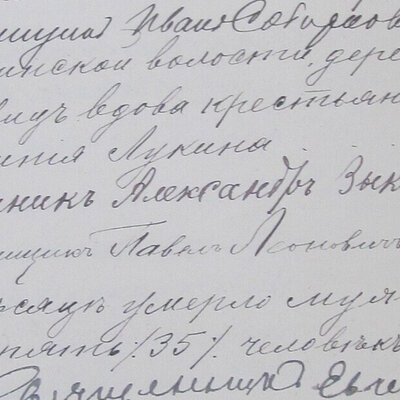 Иванъ Собо
инской волости, дере
вдова крестьян
Лукина
никъ Александръ Зык
щикъ Павелъ Леоновичъ
умерло муж
пять /35/. человѣкъ
Священникъ Евге